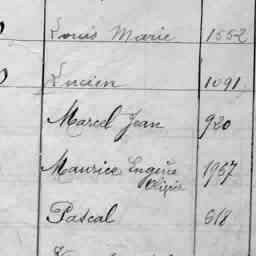 Louis Marie 1552
Lucien 1091
Marcel Jean 920
Maurice Eugène 1957
Olivier
Pascal 618